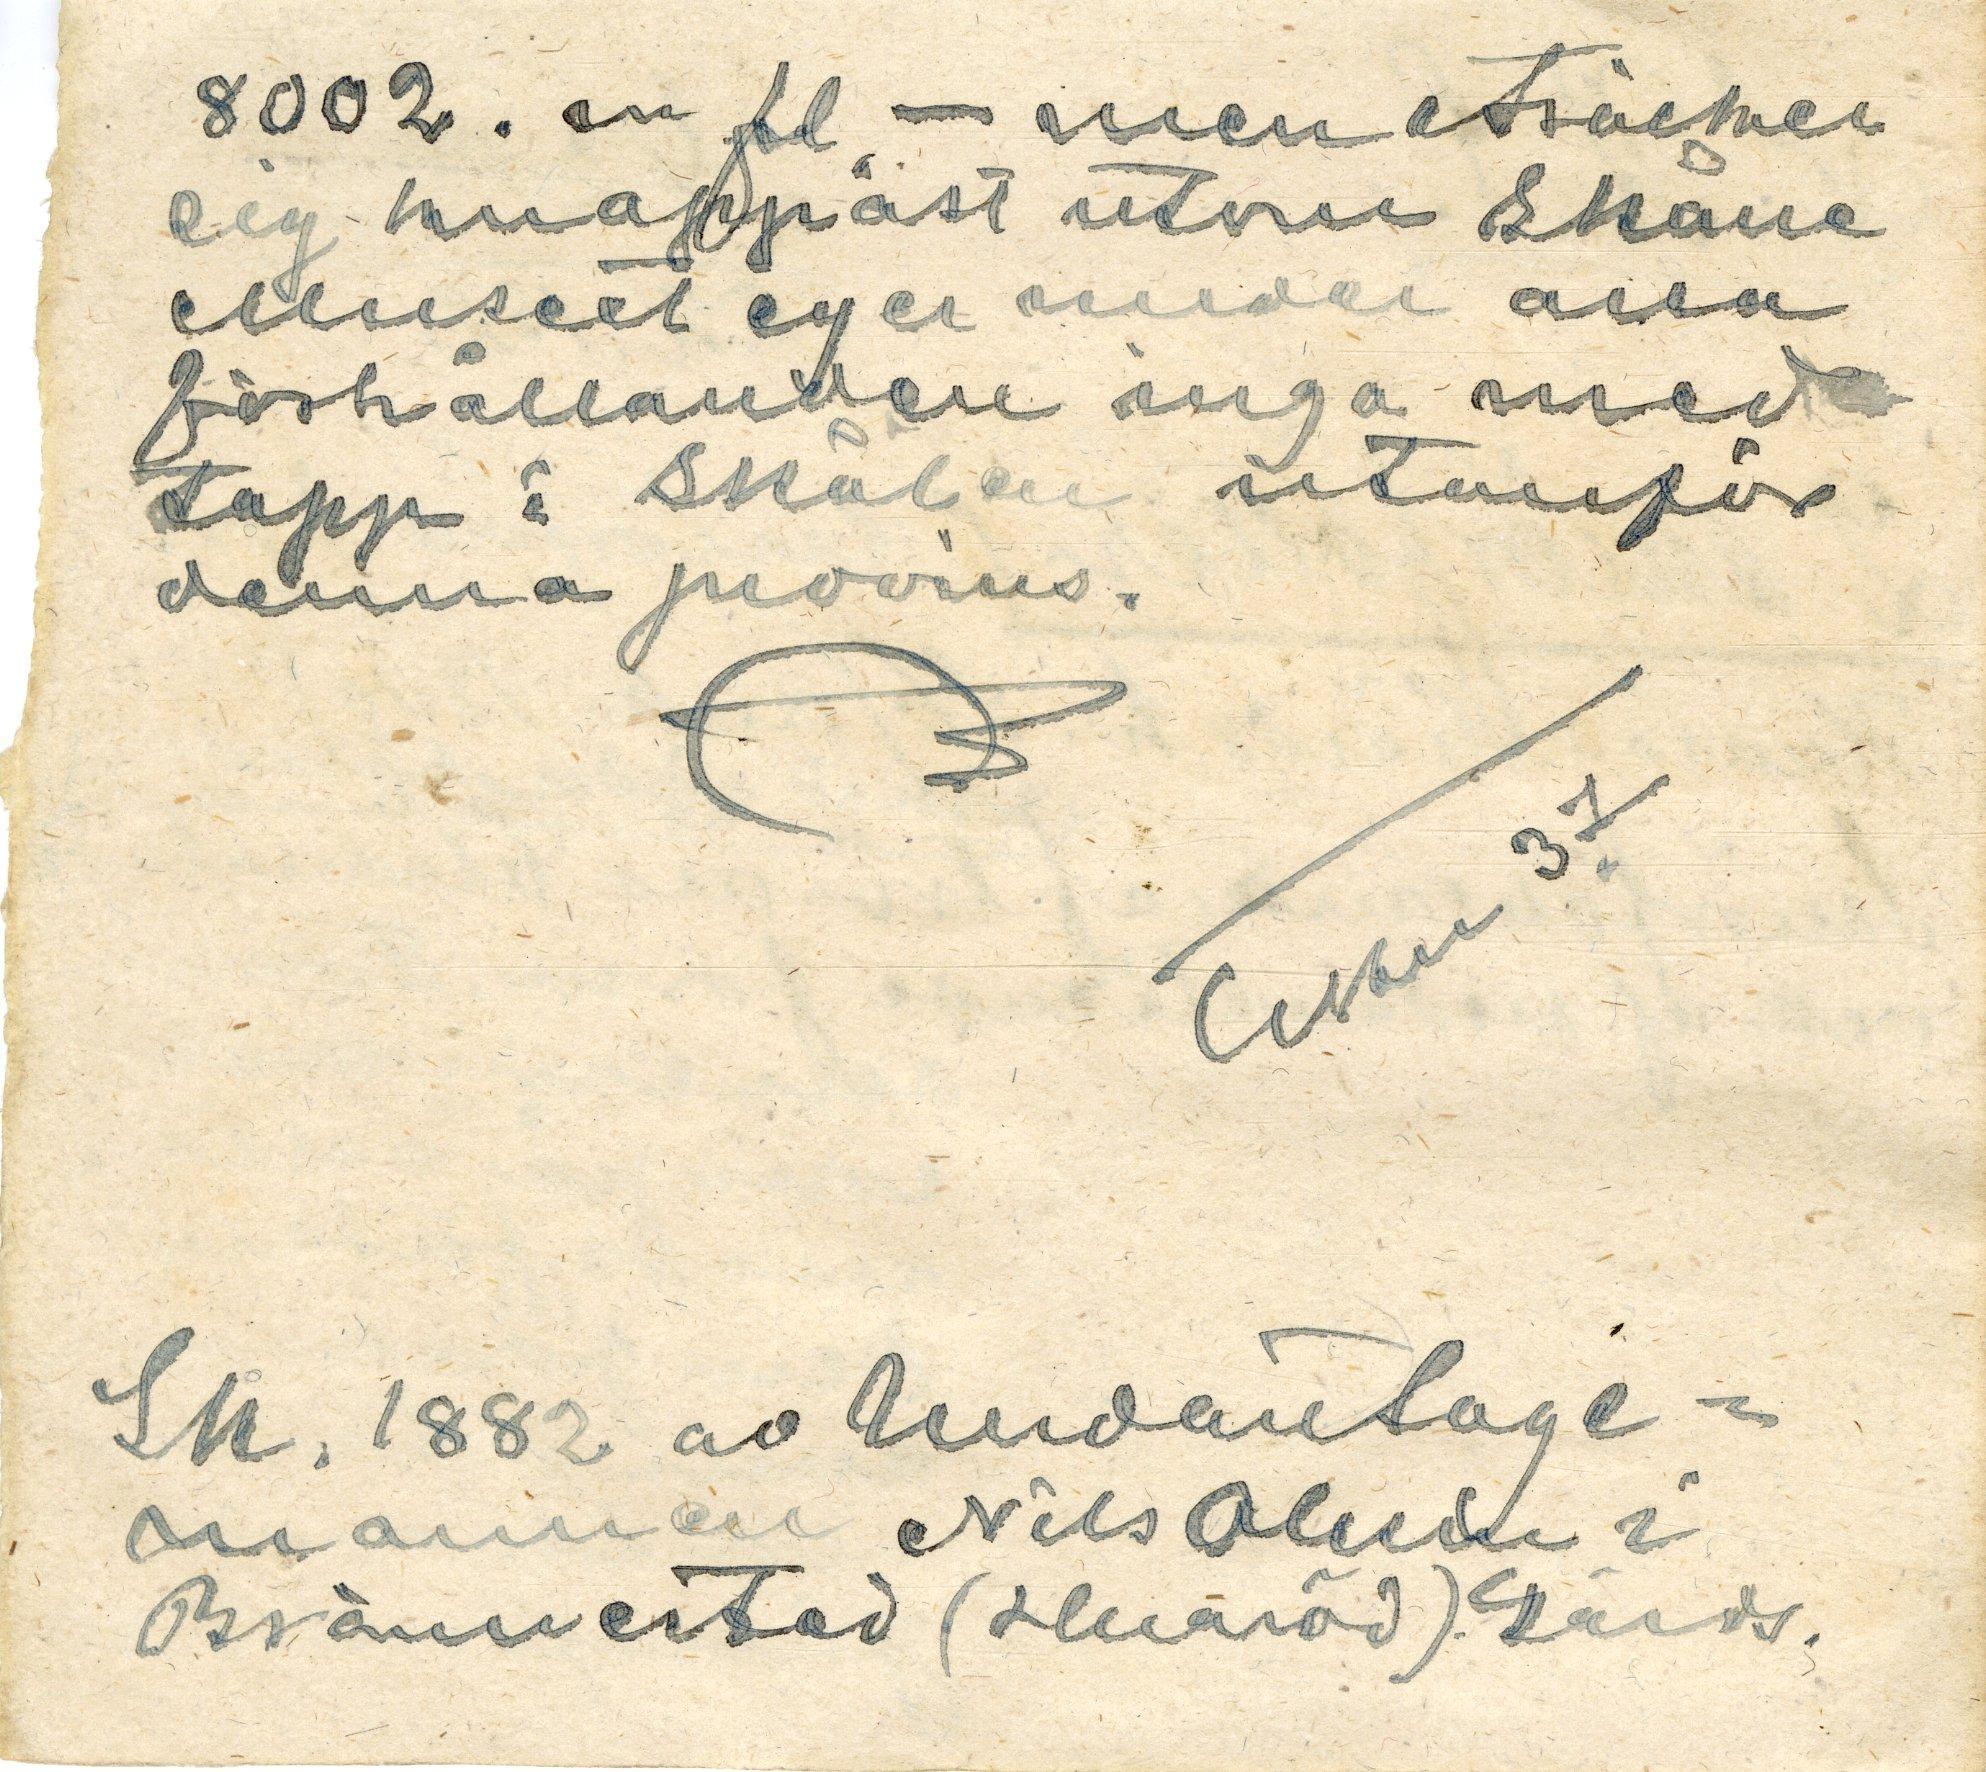 8002. m fl. – men sträcker
sig knappast utom Skåne
Museet eger under alla
förhållanden inga med
tapp i skålen utanför
denna provins.
37.
Sk. 1882 av Undantags-
mannen Nils Olin i
Brännestad (Huaröd). Gärds.